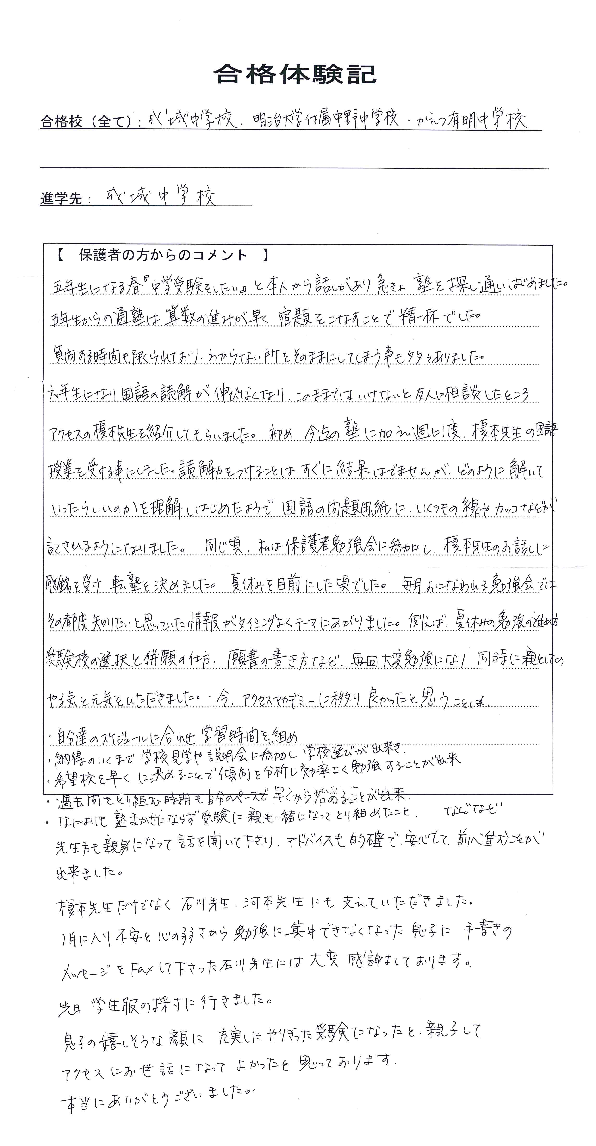 合格体験記
合格校（全て）：成城中学校．明治大学付属中野中学校．かえつ有明中学校
進学先：成城中学校
【 保護者の方からのコメント 】
五年生になる春『中学受験をしたい』と本人から話しがあり急きょ塾を探し通いはじめました。
5年生からの通塾は算数の進みが早く宿題をこなすことで精一杯でした。
質問する時間も限られており、わからない所をそのままにしてしまう事も多々ありました。
六年生になり国語の読解が伸びなくなり、このままではいけないと友人に相談したところ
アクセスの橋本先生を紹介してもらいました。初め 今迄の塾に加え週に1度 橋本先生の国語
授業を受ける事にしました。読解力をつけることはすぐに結果はでませんが、どのように解いて
いったらいいのかを理解しはじめたようで国語の問題用紙に、いくつもの線やカッコなどが
記されるようになりました。同じ頃、私は保護者勉強会に参加し、橋本先生のお話しに
感銘を受け 転塾を決めました。夏休みを目前にした頃でした。毎月おこなわれる勉強会では
その都度知りたいと思っていた情報がタイミングよくテーマにあがりました。例えば、夏休みの勉強の進め方
受験校の選択と併願の仕方、願書の書き方など、毎回大変勉強になり同時に親としての
やる気と元気をいただきました。今、アクセスアカデミーに移り良かったと思うことは
・自分達のスケジュールに合わせ学習時間を組め
・納得のいくまで学校見学や説明会に参加し、学校選びが出来き
・希望校を早くに決めることで傾向を分析し効率よく勉強することが出来
・過去問をとり組む時期も自分のペースで早くから始めることが出来
・なにより塾まかせにならず受験に親も一緒になってとり組めたこと、 などなど
先生方も親身になって話を聞いて下さり、アドバイスも的確で、安心して前へ進むことが
出来ました。
橋本先生だけでなく石川先生、河本先生にも支えていただきました。
1月に入り不安と心の弱さから勉強に集中できなくなった息子に手書きの
メッセージをFaxして下さった石川先生には大変感謝しております。
先日 学生服の採寸に行きました。
息子の嬉しそうな顔に充実したやりきった受験になったと、親子して
アクセスにお世話になってよかったと思っております。
本当にありがとうございました。